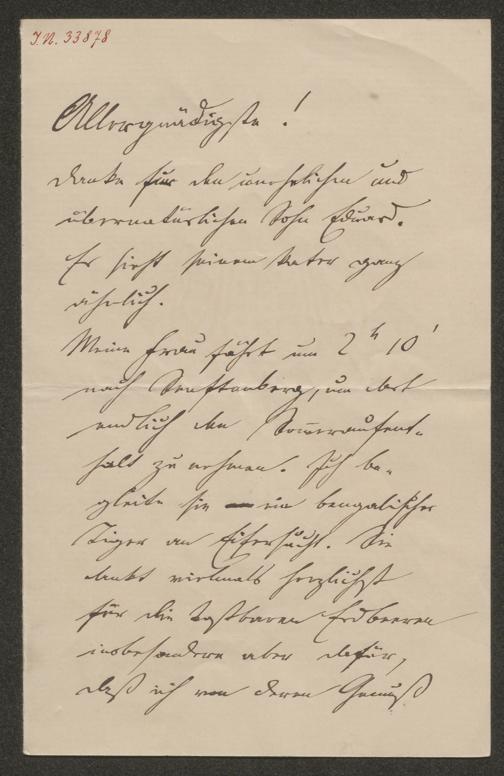 I.N. 33878
Allergnädigste!
Danke für den unehelichen und
übernatürlichen Sohn Eduard.
Er sieht seinem Vater ganz
ähnlich.
Meine Frau fährt um 2h 10'
nach Senftenberg, um dort
endlich den Sommeraufent-
halt zu nehmen. Ich be-
gleite sie – ein bengalischer
Tiger an Eifersucht. Sie
dankt vielmals herzlichst
für die kostbaren Erdbeeren
insbesondere aber dafür,
daß ich von deren Genuß